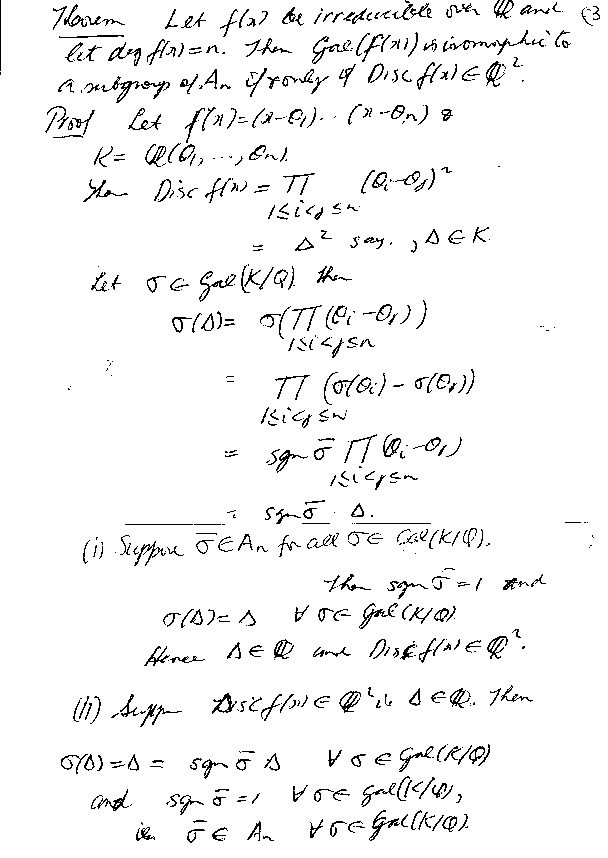 Theorem Let f(x) be irreducible over Q and (3
let deg f(x)=n. Then Gal(f(x)) is isomorphic to
a subgroup of An if & only if Disc f(x) ∈ Q².
Proof Let f(x)=(x-θ₁)...(x-θn) &
K = Q(θ₁, ..., θn).
Then Disc f(x) = ∏ (θi-θj)²
1≤i<j≤n
= Δ² say. , Δ ∈ K
Let σ ∈ Gal(K/Q) then
σ(Δ) = σ(∏(θi-θj))
1≤i<j≤n
= ∏ (σ(θi) - σ(θj))
1≤i<j≤n
= sgn σ̄ ∏ (θi-θj)
1≤i<j≤n
= sgn σ̄ · Δ.
(i) Suppose σ̄ ∈ An for all σ ∈ Gal(K/Q).
Then sgn σ̄ = 1 and
σ(Δ) = Δ ∀ σ ∈ Gal(K/Q)
Hence Δ ∈ Q and Disc f(x) ∈ Q².
(ii) Suppose Disc f(x) ∈ Q² ie Δ ∈ Q. Then
σ(Δ) = Δ = sgn σ̄ Δ ∀ σ ∈ Gal(K/Q)
and sgn σ̄ = 1 ∀ σ ∈ Gal(K/Q),
ie σ̄ ∈ An ∀ σ ∈ Gal(K/Q).